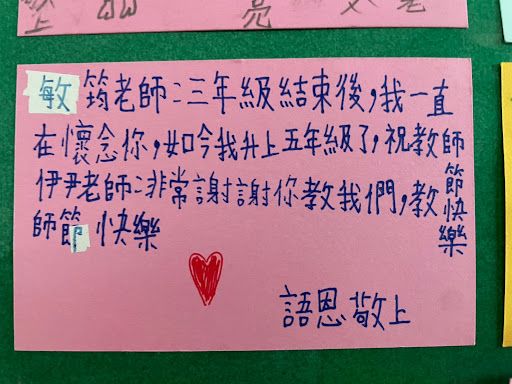 敏筠老師:三年級結束後,我一直
在懷念你,如今我升上五年級了,祝教師
節快樂
伊尹老師:非常謝謝你教我們,教
師節快樂
語恩敬上